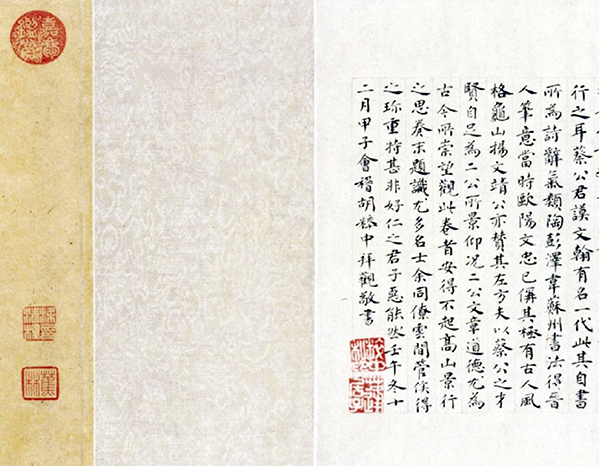 行之耳蔡公君謨文翰有名一代此其自書
所為詩辭氣類陶彭澤韋蘇州書法得晉
人筆意當時歐陽文忠已稱其極有古人風
格龜山楊文靖公亦贊其左方夫以蔡公之才
賢自足為二公所景仰况二公文章道德尤為
古今所崇望觀此卷者安得不起高山景行
之思卷末題識尤多名士余同僚雲間管侯得
之珎重特甚非好仁之君子惡能然壬午冬十
二月甲子會稽胡粹中拜觀敬書
嘉慶鑑賞
蕉林